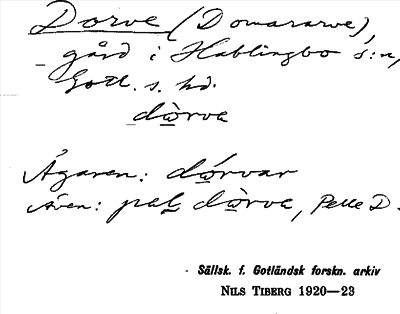 Dorve (Domararve),
gård i Hablingbo s:n,
Gotl. s. hd.
dòrva
Ägaren: dórvar
Även: pelь dòrva, Pelle D.
Sällsk. f. Gotländsk forskn. arkiv
NILS TIBERG 1920—23